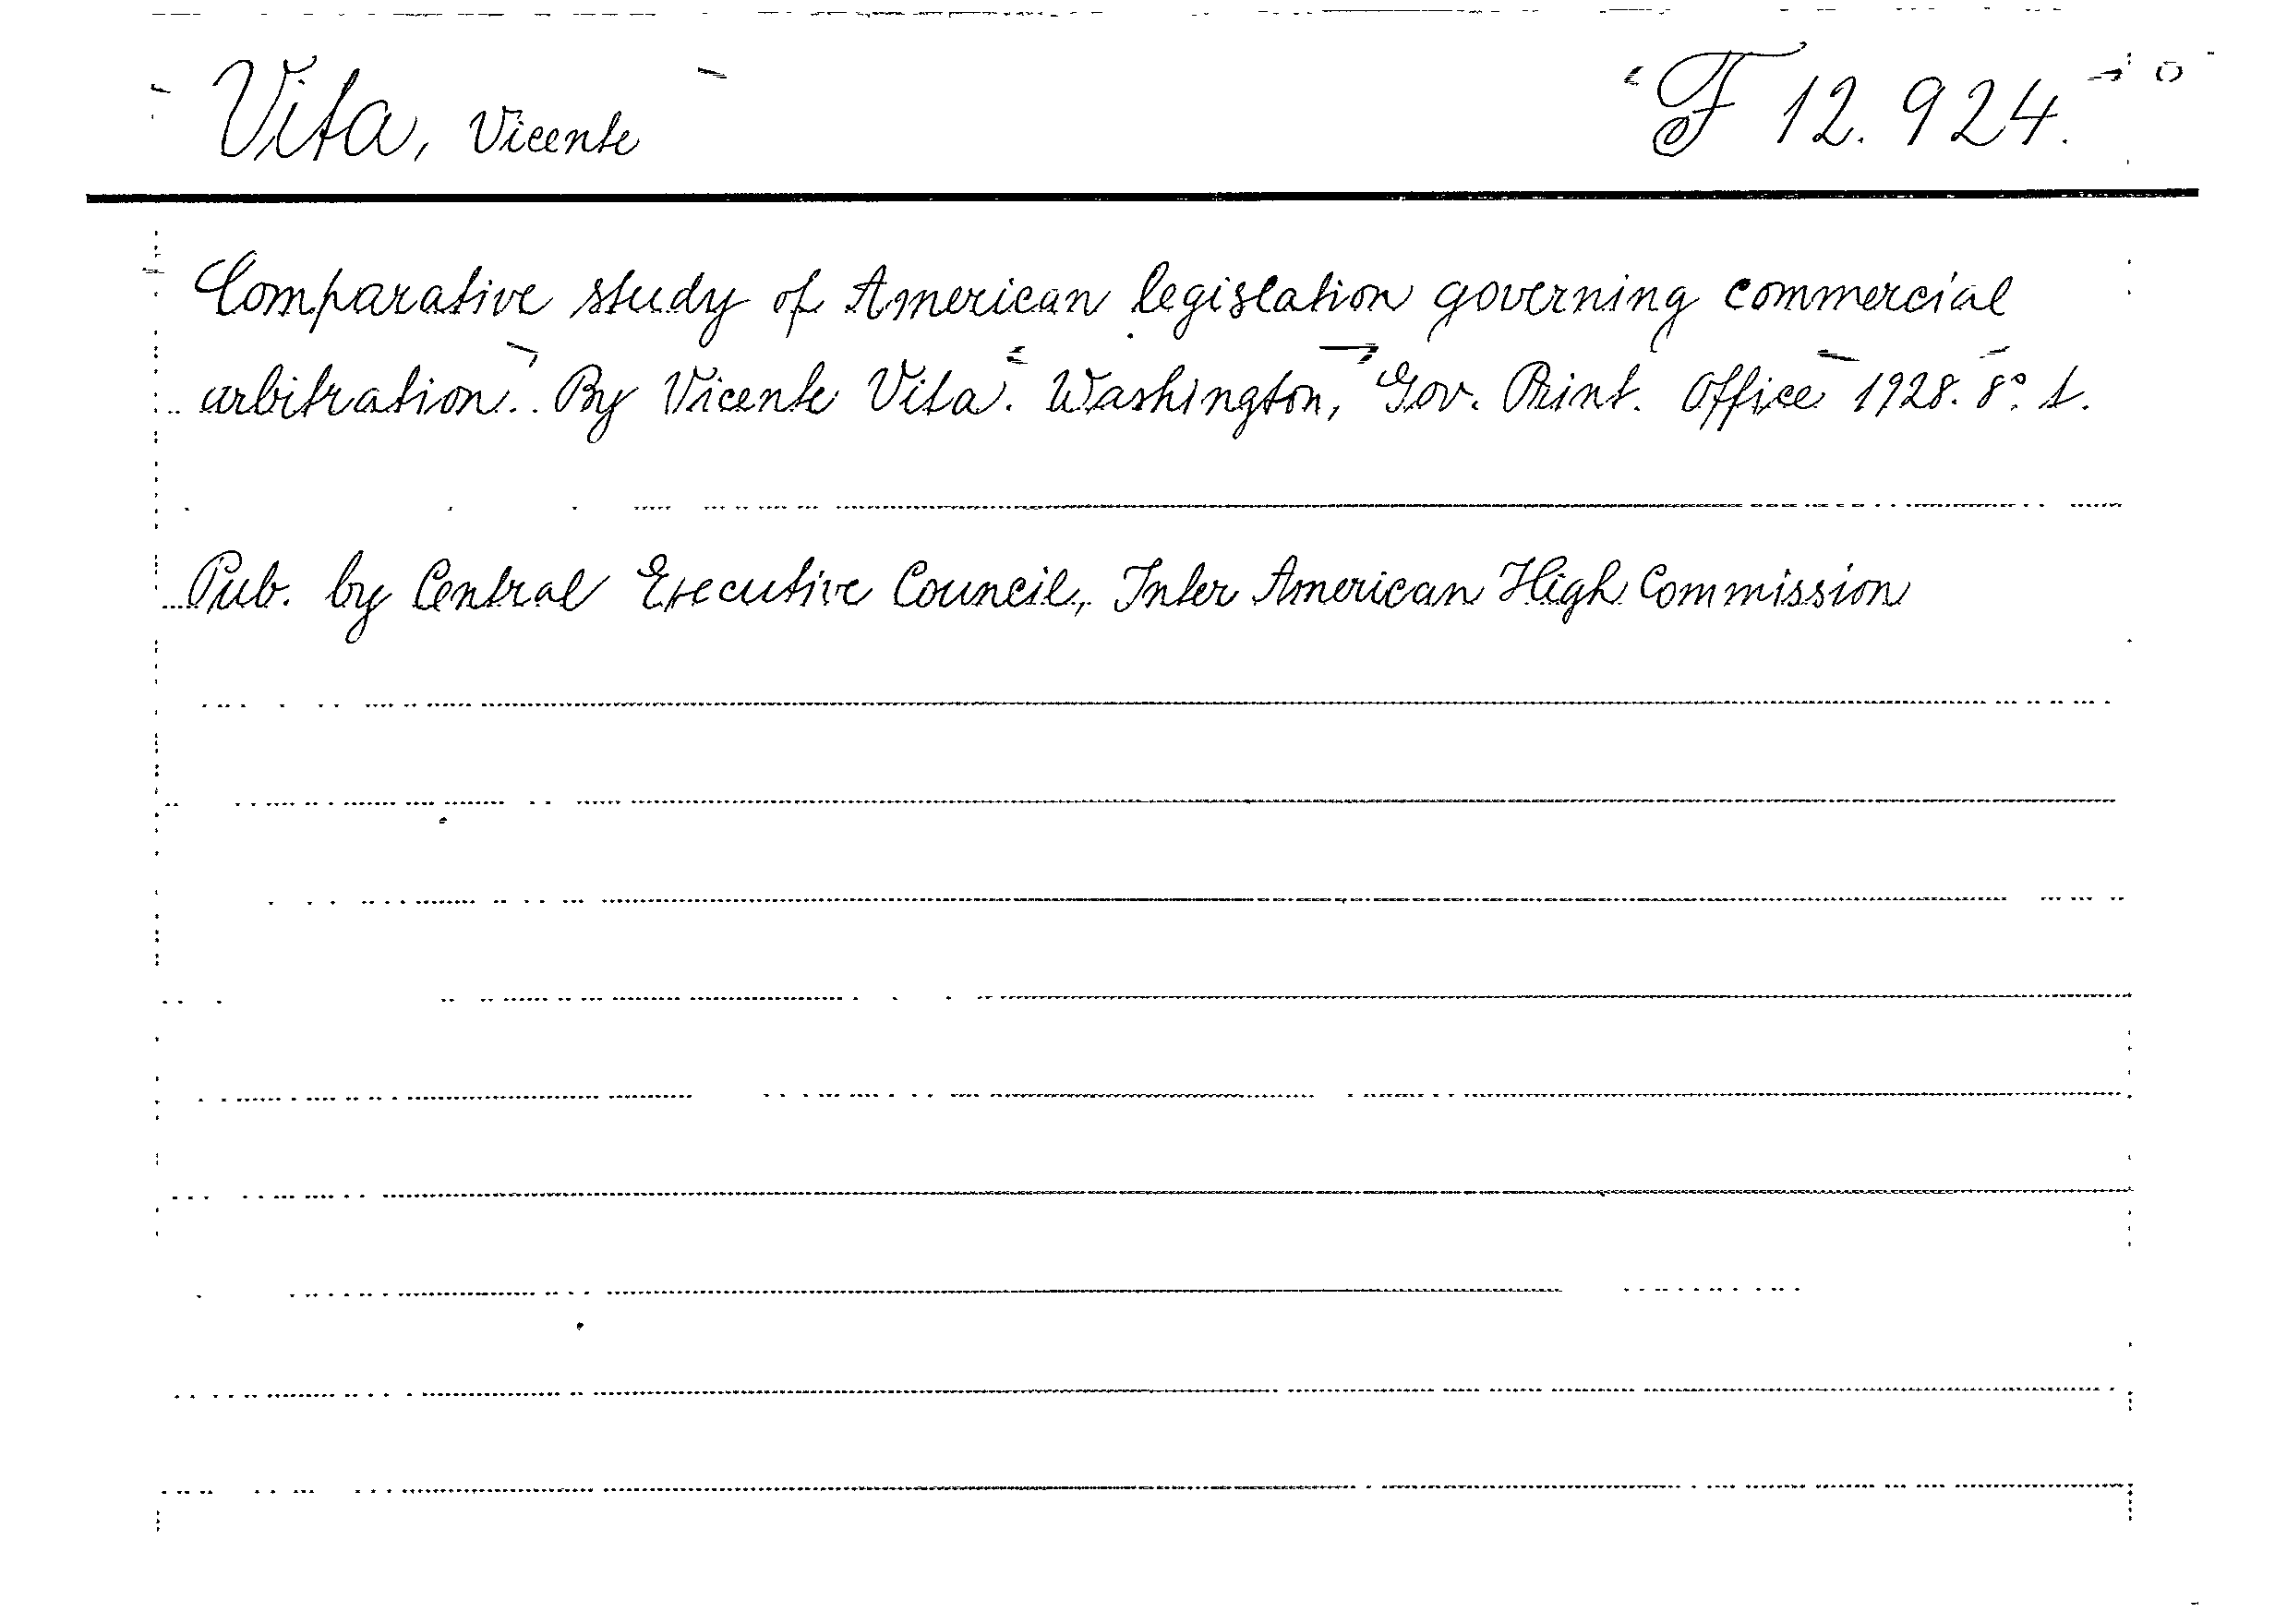 Vita, Vicente F 12.924.
Comparative study of American legislation governing commercial
arbitration. By Vicente Vita. Washington, Gov. Print. Office 1928. 8° t.
Pub. by Central Executive Council, Inter American High Commission